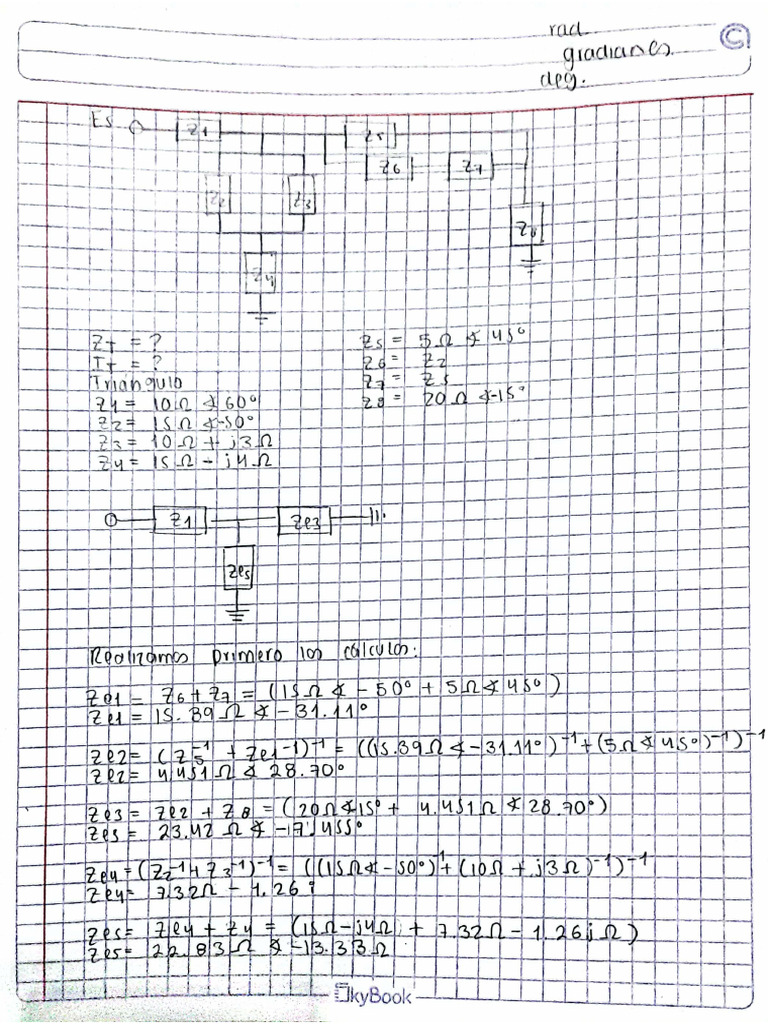 rad
gradianes.
deg.
Es
Z1
Z5
Z6
Z7
Z2
Z3
Z8
Z4
ZT = ?
IT = ?
Triangulo
Z1 = 10Ω ∡ 60°
Z2 = 15Ω ∡-50°
Z3 = 10Ω + j3Ω
Z4 = 15Ω - j4Ω
Z5 = 5Ω ∡ 45°
Z6 = Z2
Z7 = Z5
Z8 = 20Ω ∡-15°
Z1
Ze3
Ze5
Realizamos primero los calculos:
Ze1 = Z6 + Z7 = (15Ω ∡ - 50° + 5Ω ∡ 45°)
Ze1 = 15.39Ω ∡ -31.11°
Ze2 = (Z5^-1 + Ze1^-1)^-1 = ((15.39Ω ∡ -31.11°)^-1 + (5Ω ∡ 45°)^-1)^-1
Ze2 = 4.451Ω ∡ 28.70°
Ze3 = Ze2 + Z8 = (20Ω ∡15° + 4.451Ω ∡ 28.70°)
Ze3 = 23.42 Ω ∡ -17.455°
Ze4 = (Z2^-1 + Z3^-1)^-1 = ((15Ω∡ -50°)^1 + (10Ω + j3Ω)^-1)^-1
Ze4 = 7.32Ω - 1.26i
Ze5 = Ze4 + Z4 = (15Ω - j4Ω + 7.32Ω - 1.26jΩ)
Ze5 = 22.83Ω ∡ -13.33Ω
SkyBook